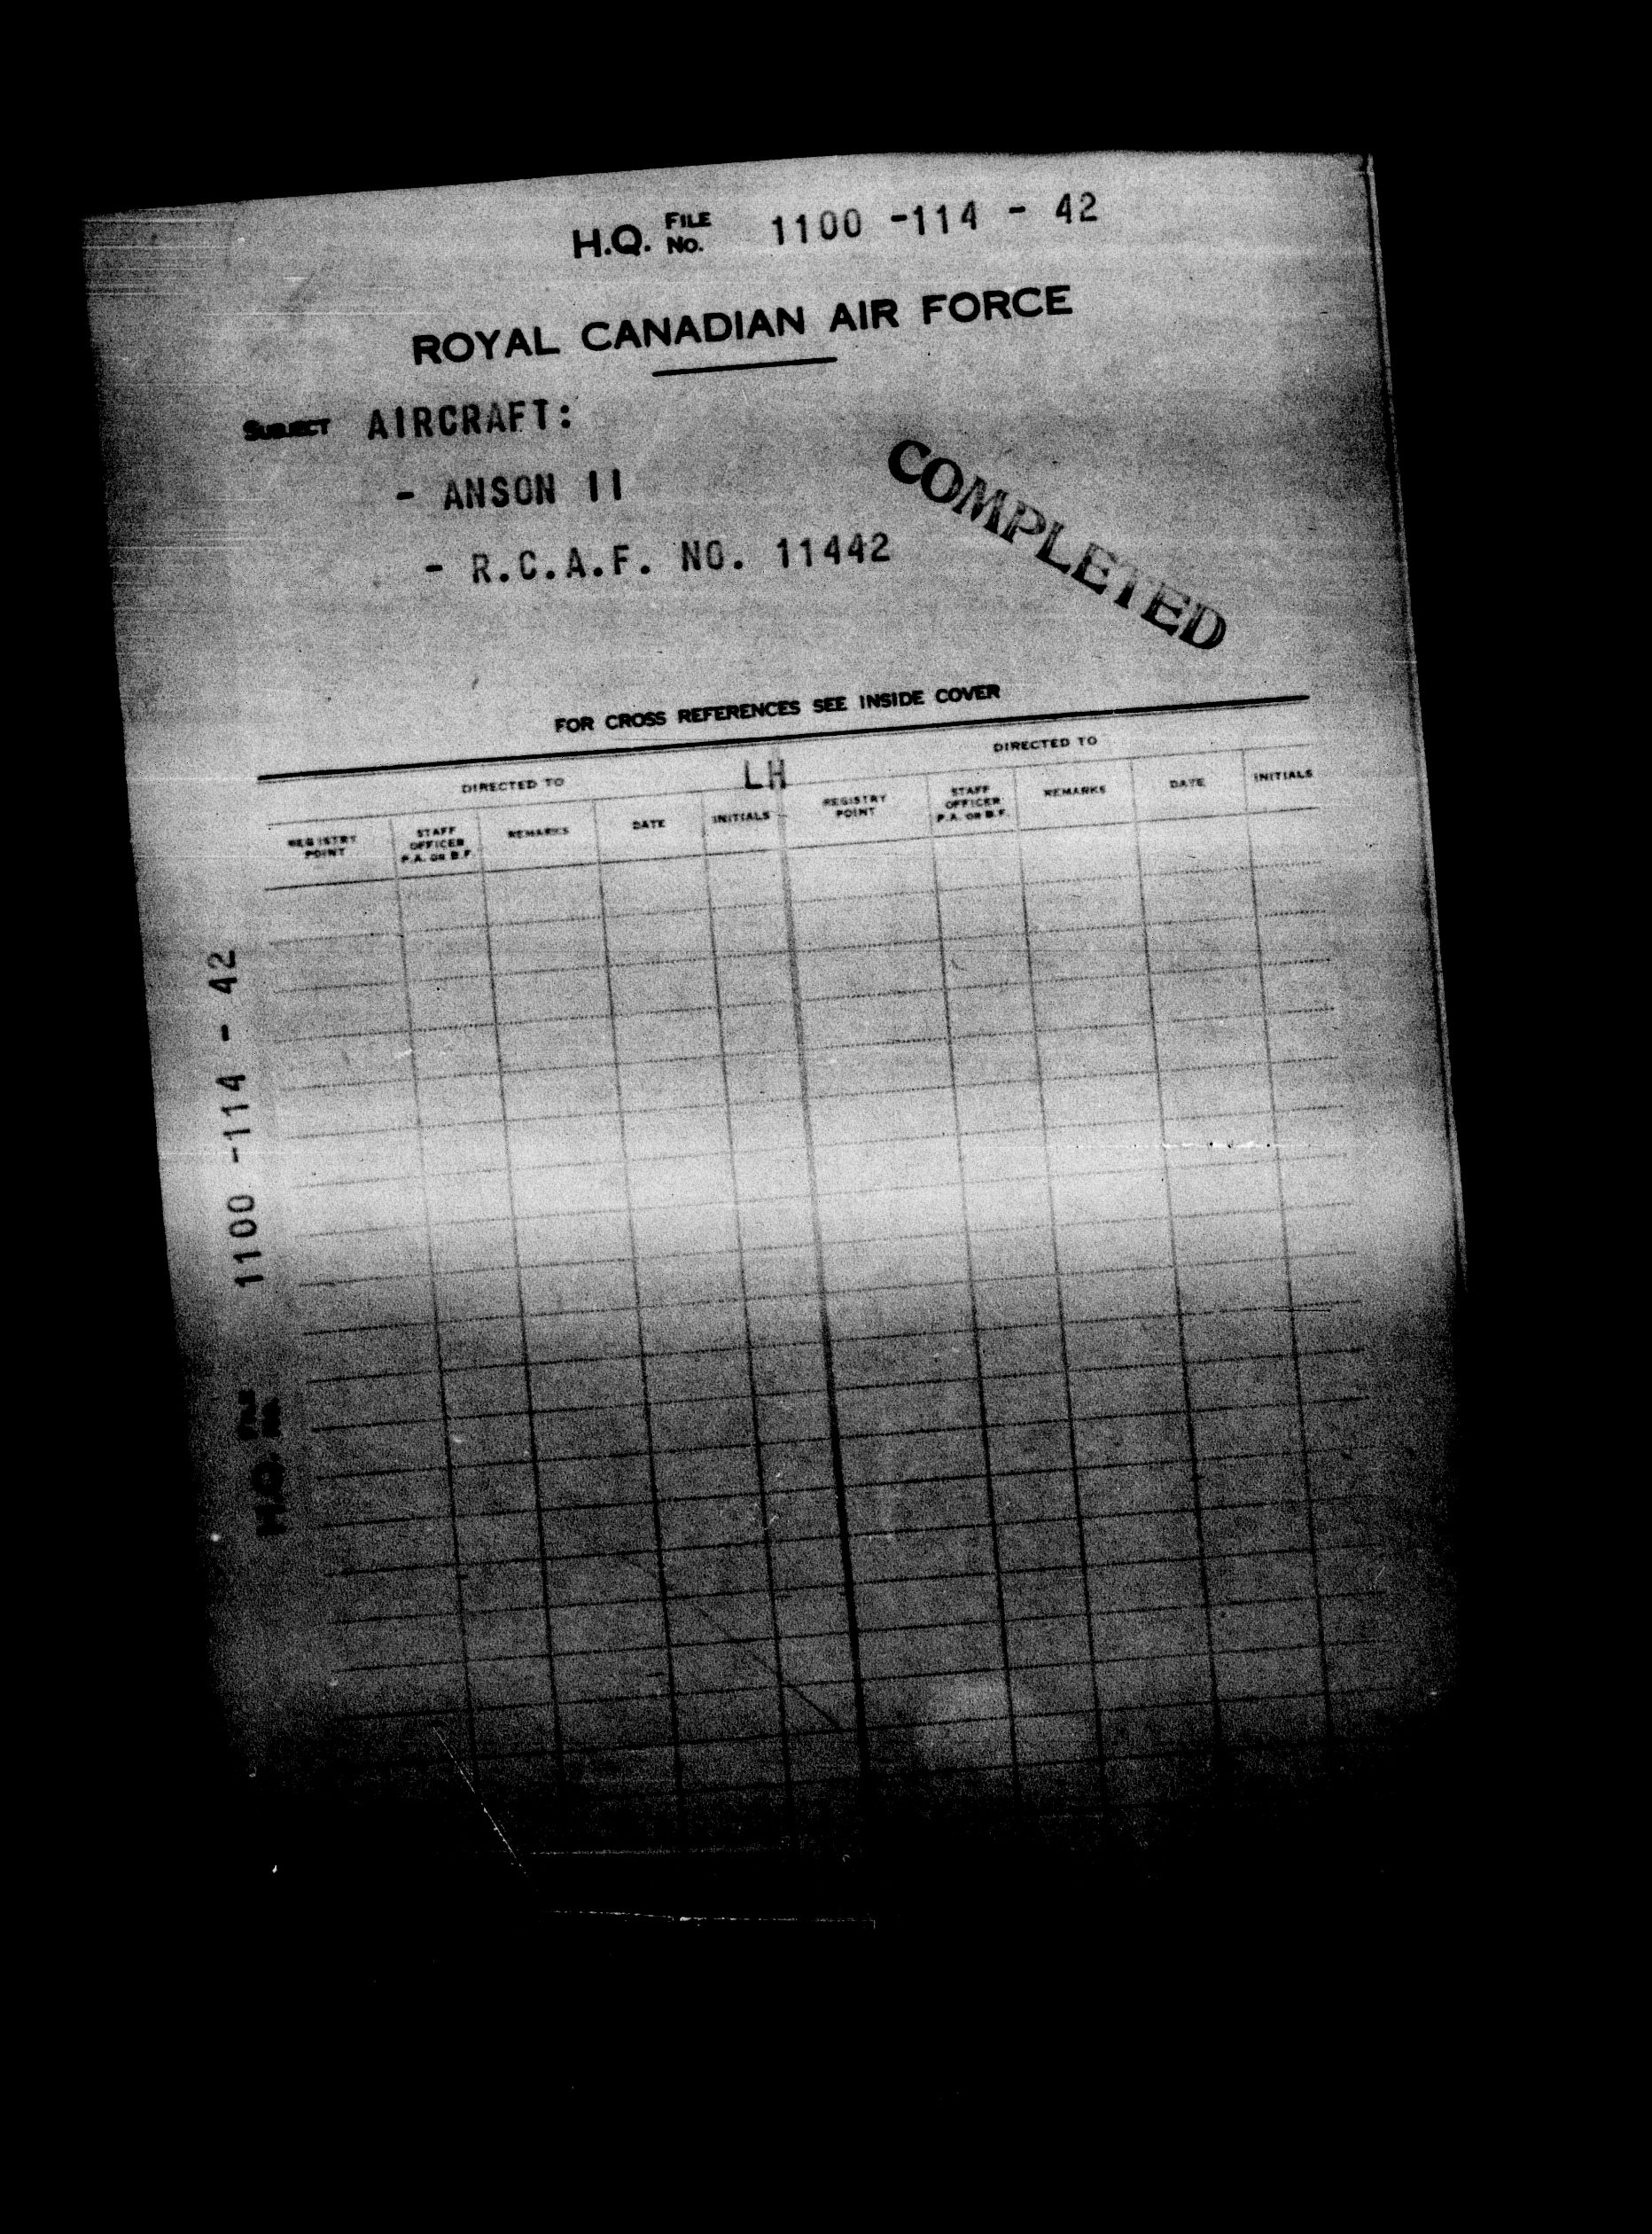 H.Q. FILE No. 1100 -114 - 42
ROYAL CANADIAN AIR FORCE
SUBJECT AIRCRAFT:
- ANSON II
- R.C.A.F. NO. 11442
COMPLETED
FOR CROSS REFERENCES SEE INSIDE COVER
DIRECTED TO
LH
DIRECTED TO
REGISTRY POINT
STAFF OFFICER P.A. OR B.F.
REMARKS
DATE
INITIALS
REGISTRY POINT
STAFF OFFICER P.A. OR B.F.
REMARKS
DATE
INITIALS
H.Q. FILE No. 1100 -114 - 42